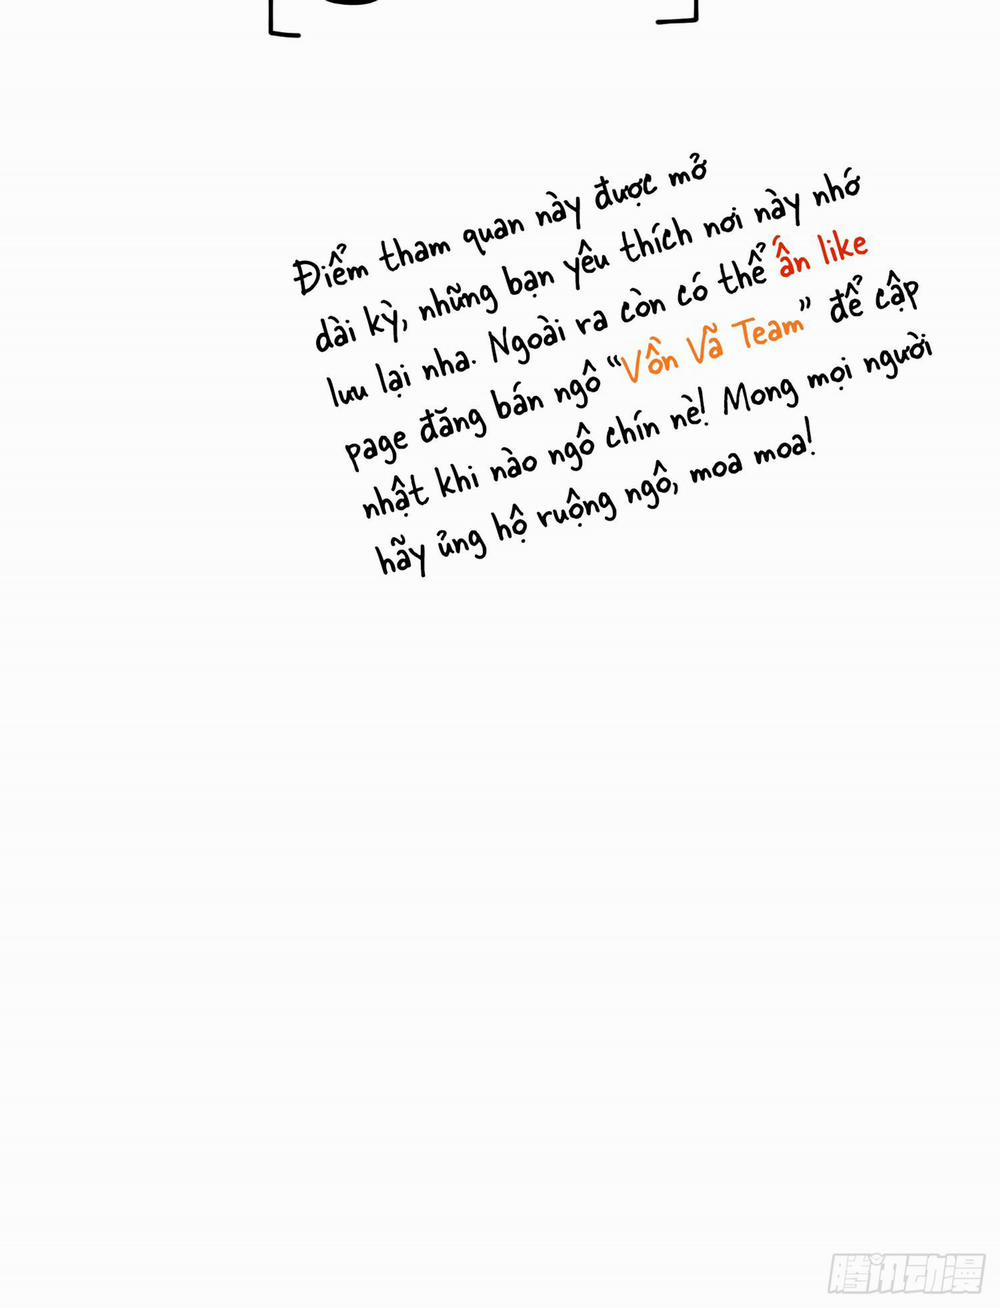 Điểm tham quan này được mở
dài kỳ, những bạn yêu thích nơi này nhớ
lưu lại nha. Ngoài ra còn có thể ấn like
page đăng bán ngô "Vồn Vã Team" để cập
nhật khi nào ngô chín nè! Mong mọi người
hãy ủng hộ ruộng ngô, moa moa!
腾讯动漫